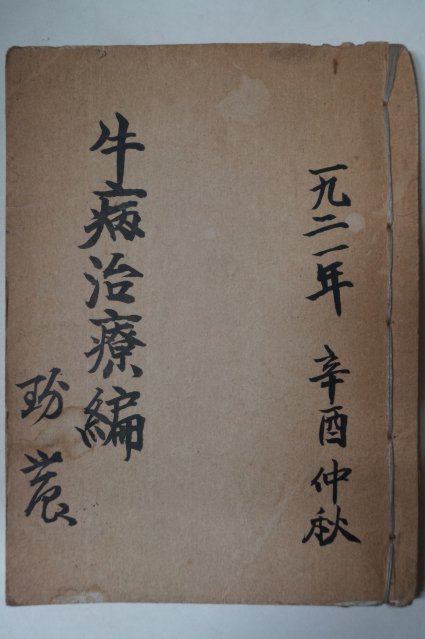 一九二一年 辛酉仲秋
牛病治療編
玢